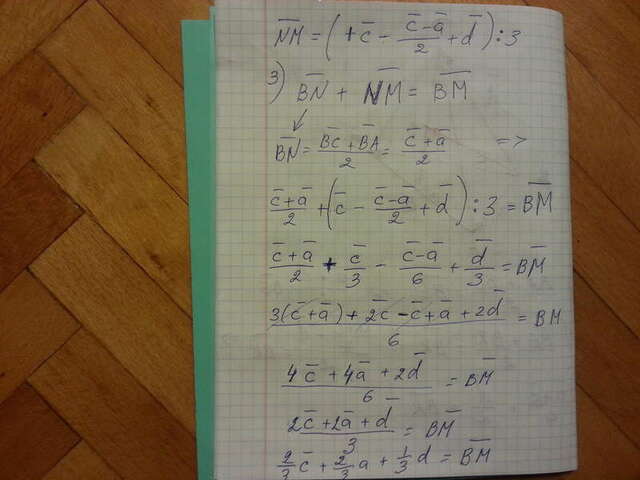 N̅M̅ = (+c̅ - (c̅-a̅)/2 + d̅) : 3
3) B̅N̅ + N̅M̅ = B̅M̅
B̅N̅ = (BC + B̅A̅)/2 = (c̅+a̅)/2 =>
(c̅+a̅)/2 + (c̅ - (c̅-a̅)/2 + d̅) : 3 = B̅M̅
(c̅+a̅)/2 + c̅/3 - (c̅-a̅)/6 + d̅/3 = BM̅
(3(c̅+a̅) + 2c̅ - c̅ + a̅ + 2d̅)/6 = BM
(4c̅ + 4a̅ + 2d̅)/6 = BM̅
(2c̅ + 2a̅ + d̅)/3 = BM̅
2/3 c̅ + 2/3 a + 1/3 d = B̅M̅